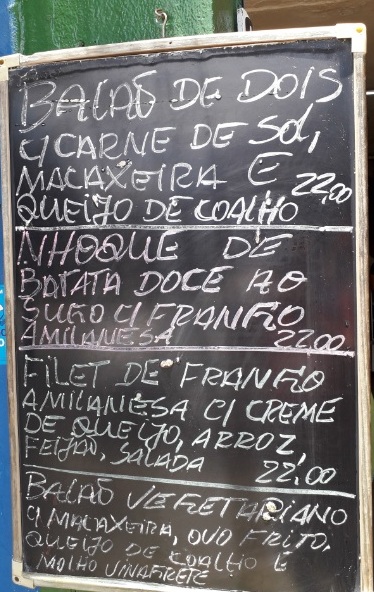 BAIAO DE DOIS
C/ CARNE DE SOL,
MACAXEIRA E 22,00
QUEIJO DE COALHO
NHOQUE DE
BATATA DOCE AO
SUGO C/ FRANGO
AMILANESA 22,00
FILET DE FRANGO
AMILANESA C/ CREME
DE QUEIJO, ARROZ,
FEIJÃO, SALADA 22,00
BAIAO VEGETARIANO
C/ MACAXEIRA, OVO FRITO,
QUEIJO DE COALHO E
MOLHO VINAGRETE